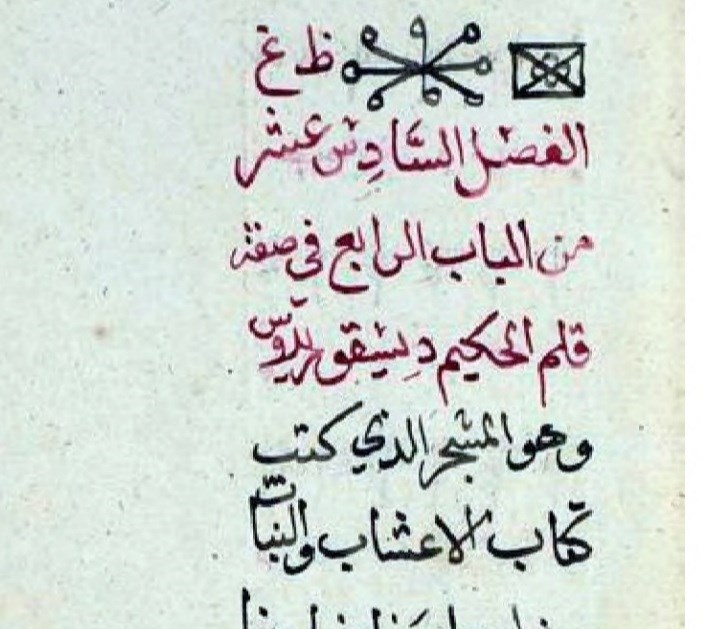 ظ غ
الفصل السادس عشر
من الباب الرابع في صفة
قلم الحكيم ديسقوريدوس
وهو المشجر الذي كتب
كتاب الاعشاب والنبات